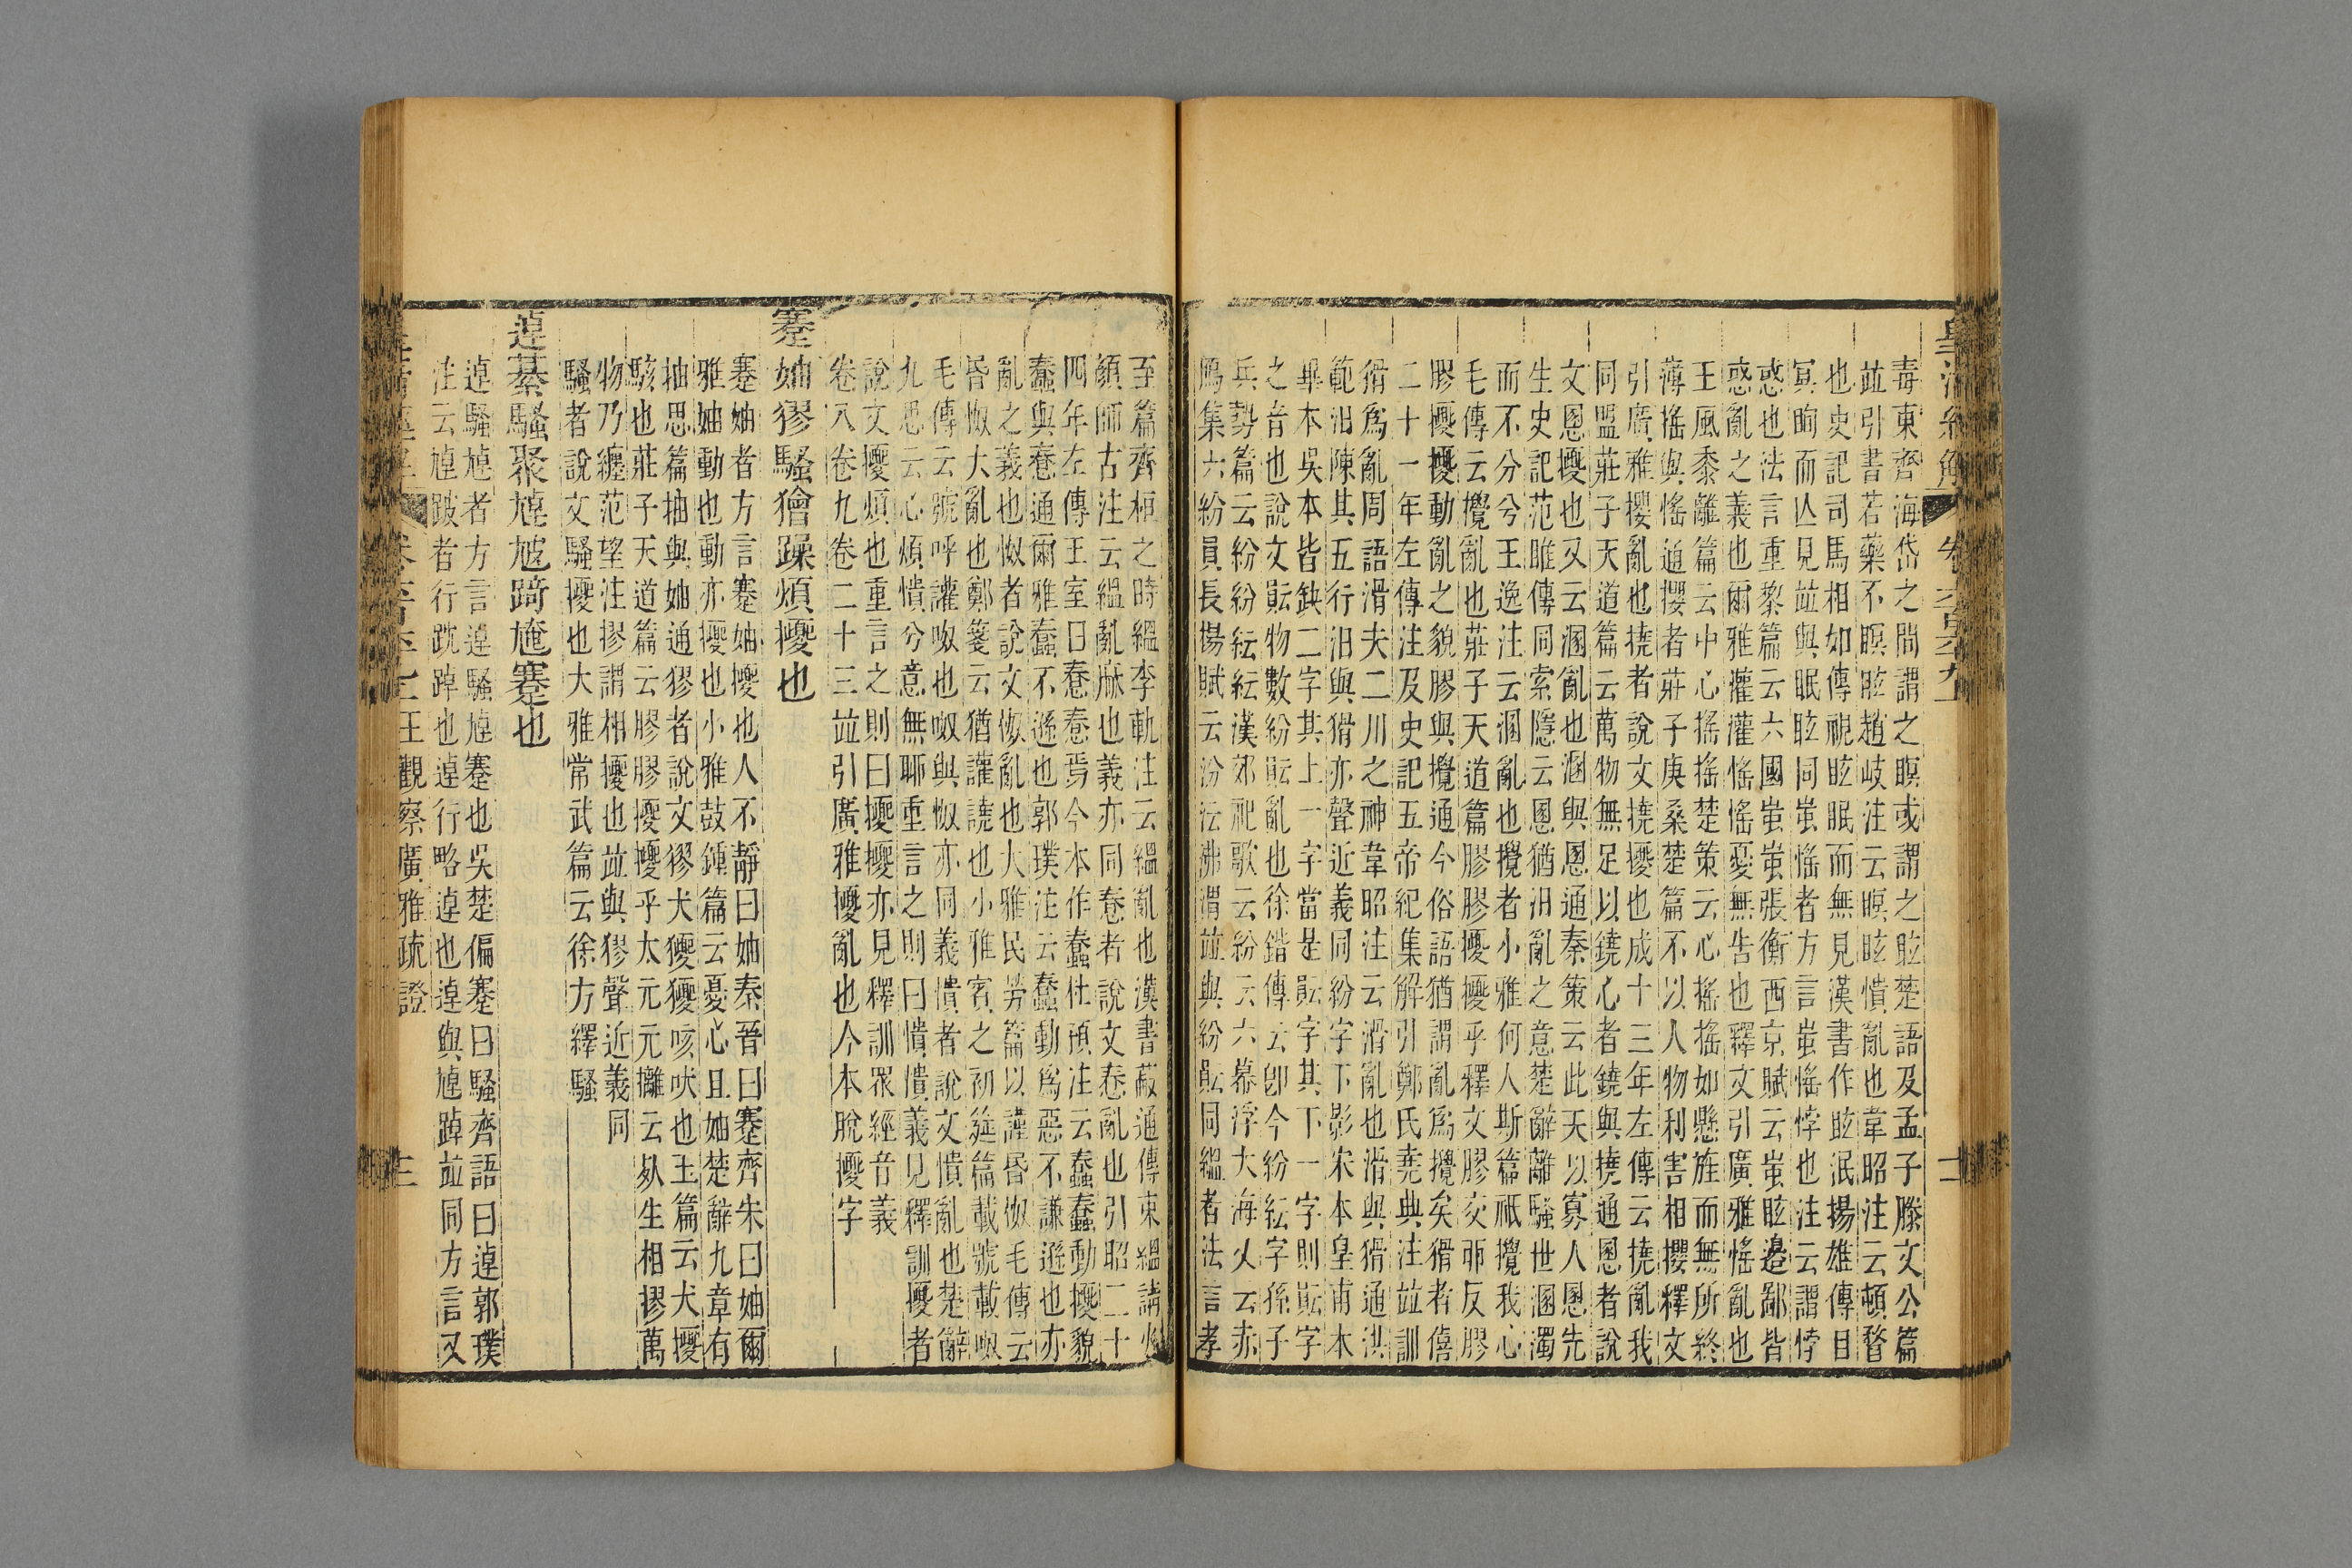 毒東齊海岱之閒謂之瞑或謂之眩楚語及孟子滕文公篇
竝引書若藥不瞑眩趙岐注云瞑眩憒亂也韋昭注云頓瞀
也史記司馬相如傳視眩眠而無見漢書作眩泯揚雄傳目
冥眴而亡見竝與眠眩同蚩愮者方言蚩愮悖也注云謂悖
惑也法言重黎篇云六國蚩蚩張衡西京賦云蚩眩邊鄙皆
惑亂之義也爾雅灌灌愮愮憂無告也釋文引廣雅愮亂也
王風黍離篇云中心搖搖楚策云心搖搖如懸旌而無所終
薄搖與愮通攖者莊子庚桑楚篇不以人物利害相攖釋文
引廣雅攖亂也撓者說文撓擾也成十三年左傳云撓亂我
同盟莊子天道篇云萬物無足以鐃心者鐃與撓通慁者說
文慁擾也又云溷亂也溷與慁通秦策云此天以寡人慁先
生史記范雎傳同索隱云慁猶汨亂之意楚辭離騷世溷濁
而不分兮王逸注云溷亂也攪者小雅何人斯篇祇攪我心
毛傳云攪亂也莊子天道篇膠膠擾擾乎釋文膠交卯反膠
膠擾擾動亂之貌膠與攪通今俗語猶謂亂爲攪矣猾者僖
二十一年左傳注及史記五帝紀集解引鄭氏堯典注竝訓
猾爲亂周語滑夫二川之神韋昭注云滑亂也滑與猾通洪
範汨陳其五行汨與猾亦聲近義同紛字下影宋本皇甫本
畢本吳本皆缺二字其上一字當是䰟字其下一字則䰟字
之音也說文䰟物數紛䰟亂也徐鍇傳云卽今紛紜字孫子
兵勢篇云紛紛紜紜漢郊祀歌云紛云六幕浮大海火云赤
鴈集六紛員長揚賦云汾沄沸渭竝與紛䰟同縕者法言孝
至篇齊桓之時縕李軌注云縕亂也漢書蒯通傳束縕請火
顏師古注云縕亂麻也義亦同惷者說文惷亂也引昭二十
四年左傳王室日惷惷焉今本作蠢杜預注云蠢蠢動擾貌
蠢與惷通爾雅蠢不遜也郭璞注云蠢動爲惡不謙遜也亦
亂之義也怓者說文怓亂也大雅民勞篇以謹昏怓毛傳云
昏怓大亂也鄭箋云猶讙譊也小雅賓之初筵篇載號載呶
毛傳云號呼讙呶也呶與怓亦同義憒者說文憒亂也楚辭
九思云心煩憒兮意無聊重言之則曰憒憒義見釋訓擾者
說文擾煩也重言之則曰擾擾亦見釋訓眾經音義
卷八卷九卷二十三竝引廣雅擾亂也今本脫擾字
蹇妯獿騷獪躁煩擾也
蹇妯者方言蹇妯擾也人不靜曰妯秦晉曰蹇齊宋曰妯爾
雅妯動也動亦擾也小雅鼓鍾篇云憂心且妯楚辭九章有
抽思篇抽與妯通獿者說文獿犬獿獿咳吠也玉篇云犬擾
駭也莊子天道篇云膠膠擾擾乎太元元攡云㚈生相摎萬
物乃纏范望注摎謂相擾也竝與獿聲近義同
騷者說文騷擾也大雅常武篇云徐方繹騷
逴騹騷聚尵尳踦尪蹇也
逴騷尵者方言逴騷尵蹇也吳楚偏蹇曰騷齊語曰逴郭璞
注云尵跛者行跣踔也逴行略逴也逴與尵踔竝同方言又
王觀察廣雅疏證